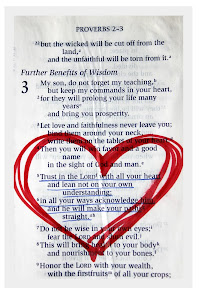 PROVERBS 2–3
but the wicked will be cut off from the
land,
and the unfaithful will be torn from it.
Further Benefits of Wisdom
3 My son, do not forget my teaching,
but keep my commands in your heart,
for they will prolong your life many
years
and bring you prosperity.
Let love and faithfulness never leave you;
bind them around your neck,
write them on the tablet of your heart.
Then you will win favor and a good
name
in the sight of God and man.
Trust in the LORD with all your heart
and lean not on your own
understanding;
in all your ways acknowledge him,
and he will make your paths
straight.
Do not be wise in your own eyes;
fear the LORD and shun evil.
This will bring health to your body
and nourishment to your bones.
Honor the LORD with your wealth,
with the firstfruits of all your crops;